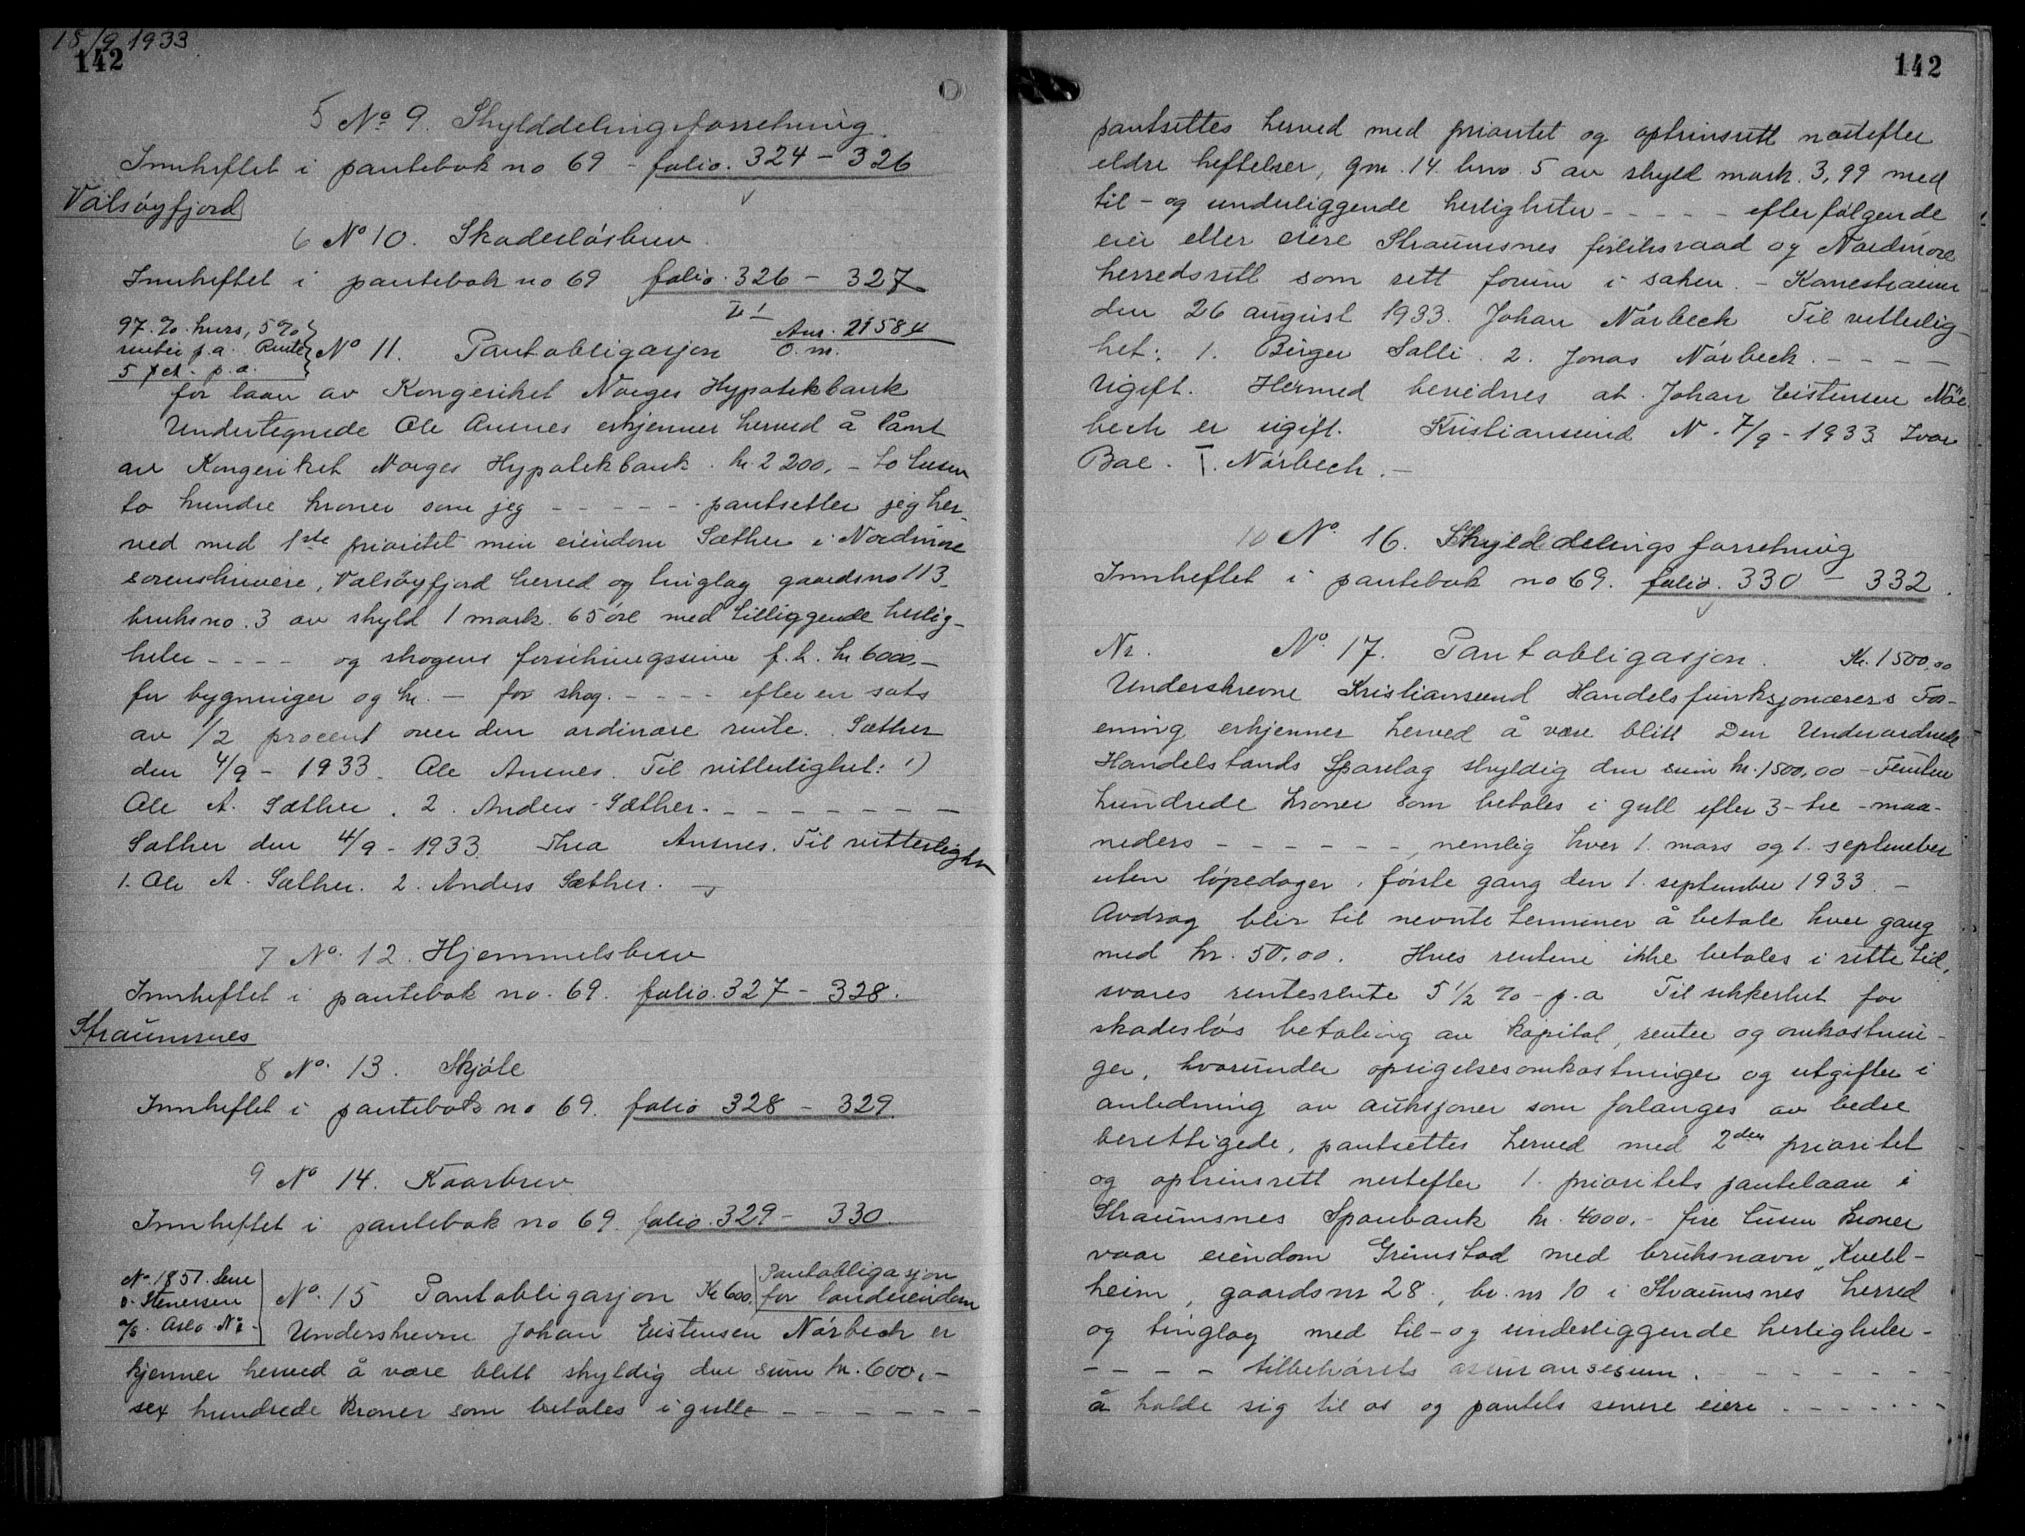 18/9 1933
142
5 No 9. Skylddelingsforretning.
Innheftet i pantebok no 69 - folio. 324 - 326
Valsøyfjord
6 No 10. Skadesløsbrev.
Innheftet i pantebok no 69 folio. 326 - 327
97 % kurs, 5 %
renter p.a. Rente
5 pct. p.a.
No 11. Pantobligasjon Anr. 21584
O.m.
for laan av Kongeriket Norges Hypotekbank
Undertegnede Ole Ansnes erkjenner herved å lånt
av Kongeriket Norges Hypotekbank. kr. 2 200, - to tusen
to hundre kroner som jeg - - - - - pantsetter jeg her-
ved med 1ste prioritet min eiendom Sæther i Nordmøre
sorenskriveri, Valsøyfjord herred og tinglag gaardsno 113
bruksno. 3 av skyld 1 mark. 65 øre med tilliggende herlig-
heter - - - - og skogens forsikringssum f.t. kr 6000,-
for bygninger og kr. - for skog. - - - - efter en sats
av 1/2 procent over den ordinære rente. Sæther
den 4/9 - 1933. Ole Ansnes. Til vitterlighet: 1)
Ole A. Sæther. 2. Anders Sæther. - - - - - - -
Sæther den 4/9 - 1933. Thea Ansnes. Til vitterlighet
1. Ole A. Sæther. 2. Anders Sæther. -
7 No. 12. Hjemmelsbrev
Innheftet i pantebok no. 69. folio. 327 - 328.
Straumsnes
8 No. 13. Skjøte
Innheftet i pantebok no 69. folio 328 - 329.
9 No 14. Kaarbrev
Innheftet i pantebok no 69. folio. 329 - 330.
No. 1851. Sem
o. Stenersen
A/S. Oslo No -
No. 15 Pantobligasjon Kr 600. Pantobligasjon
for landeiendom
Underskrevne Johan Eistensen Nórbech er
kjenner herved å være blitt skyldig den sum kr. 600,-
sex hundrede kroner som betales i gull - - - - - -
142
pantsettes herved med prioritet og optrinsrett nestefter
eldre heftelser, gnr. 14. brno. 5 av skyld mark. 3,99 med
til - og underliggende herligheter - - - - - efterfølgende
eier eller eiere Straumsnes forliksraad og Nordmøre
herredsrett som rett forum i saken. - Kanestraum
den 26 august 1933. Johan Nórbech Til vitterlig-
het: 1. Birger Salli. 2. Jonas Nórbech. - - - -
Ugift. Hermed bevidnes at Johan Eistensen Nór-
bech er ugift. Kristiansund N. 7/9 - 1933 Ivar
Bae. T. Nórbech. -
10 No. 16. Skylddelingsforretning
Innheftet i pantebok no 69. folio. 330 - 332.
Nr. No. 17. Pantobligasjon. Kr. 1500,00
Underskrevne Kristiansund Handelsfunksjonærers For-
ening erkjenner herved å være blitt Den Underordnede
Handelstands Sparelag skyldig den sum kr. 1500,00 - Femten
hundrede kroner som betales i gull efter 3 - tre - maa-
neders - - - - - - nemlig hver 1. mars og 1. september
uten løpedager, første gang den 1. september 1933. -
Avdrag blir til nevnte terminer å betale hver gang
med kr. 50,00. Hves rentene ikke betales i rette tid,
svares rentesrente 5 1/2 % - p.a Til sikkerhet for
skadesløs betaling av kapital, renter og omkostnin-
ger, hvorunder opsigelsesomkostninger og utgifter i
anledning av auksjoner som forlanges av bedre
berettigede, pantsettes herved med 2den prioritet
og optrinsrett nestefter 1. prioritets pantelaan i
Straumsnes Sparebank kr. 4000.- fire tusen kroner
vaar eiendom Grimstad med bruksnavn „Kveld-
heim, gaardsnr 28., br. nr 10 i Straumsnes herred
og tinglag med til - og underliggende herligheter -
- - - - tilbehørets assuransesum. - - - - - -
å holde sig til os og pantets senere eiere. - - - - - -